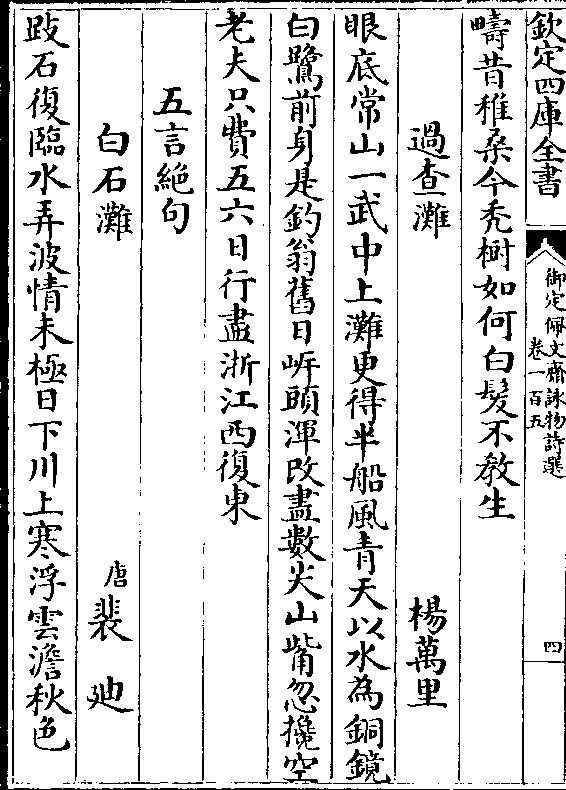 欽定四庫全書
御定佩文齋詠物詩選
卷一百五
四
疇昔稚桑今禿樹如何白髮不教生
過查灘
楊萬里
眼底常山一武中上灘更得半船風青天以水為銅鏡
白鷺前身是釣翁舊日㟁頭渾改盡數尖山觜忽攙空
老夫只費五六日行盡浙江西復東
五言絕句
白石灘
唐裴廸
跂石復臨水弄波情未極日下川上寒浮雲澹秋色